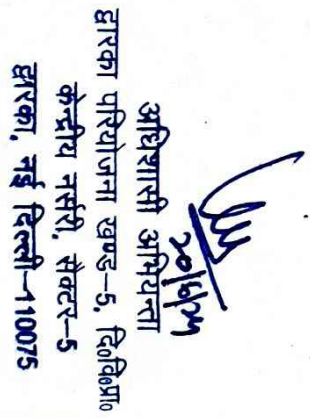 20/6/24
अधिशासी अभियन्ता
द्वारका परियोजना खण्ड-5, दि०वि०प्रा०
केन्द्रीय नर्सरी, सेक्टर-5
द्वारका, नई दिल्ली-110075